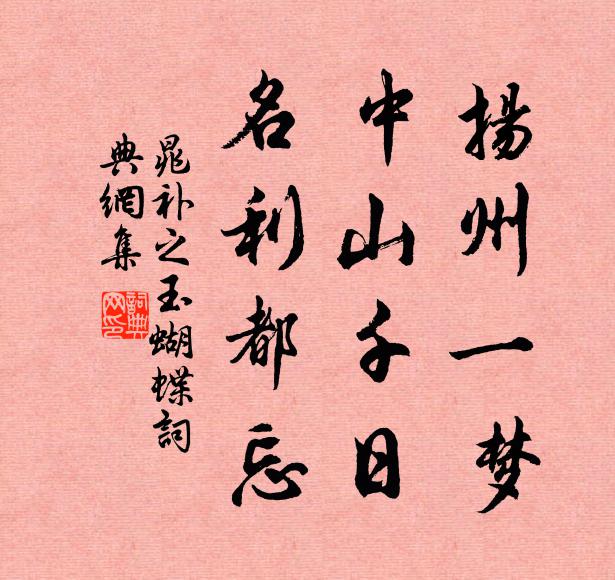 揚州一梦
中山千日
名利都忘
晁补之玉蝴蝶詞
典網集
詞典网印